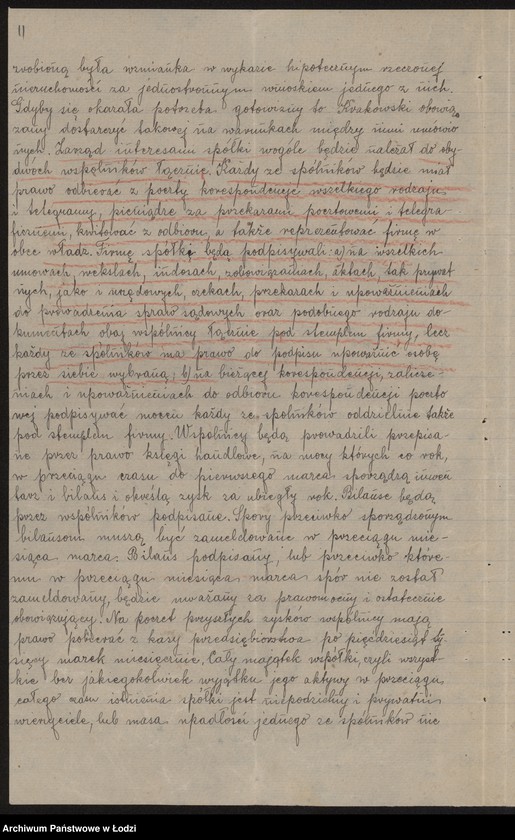 11
zrobioną była wzmianka w wykazie hipotecznym rzeczonej
nieruchomości za jednostronnym wnioskiem jednego z nich.
Gdyby się okazała potrzeba gotowizny to Krakowski obowią-
zany dostarczyć takowej na warunkach między nimi umówio
nych. Zarząd interesami spółki wogóle będzie należał do oby-
dwóch wspólników łącznie. Każdy ze spólników będzie miał
prawo odbierać z poczty korespondencję wszelkiego rodzaju
i telegramy, pieniądze za przekazami pocztowemi i telegra-
ficznemi, kwitować z odbioru, a także reprezentować firmę w
obec władz. Firmę spółki będą podpisywali: a) na wszelkich
umowach, wekslach, indosach, zobowiązaniach, aktach, tak prywat
nych, jako i urzędowych, czekach, przekazach i upoważnieniach
do prowadzenia spraw sądowych oraz podobnego rodzaju do-
kumentach obaj wspólnicy łącznie pod stemplem firmy, lecz
każdy ze spólników ma prawo do podpisu upoważnić osobę
przez siebie wybraną; b) na bieżącej korespondencji, zalicze-
niach i upoważnieniach do odbioru korespondencji poczto
wej podpisywać mocen każdy ze spólników oddzielnie także
pod stemplem firmy. Wspólnicy będą prowadzili przepisa-
ne przez prawo księgi handlowe, na mocy których co rok,
w przeciągu czasu do pierwszego marca sporządzą inwen
tarz i bilans i określą zysk za ubiegły rok. Bilanse będą
przez wspólników podpisane. Spory przeciwko sporządzonym
bilansom muszą być zameldowane w przeciągu mie-
siąca marca. Bilans podpisany, lub przeciwko które-
mu w przeciągu miesiąca marca spór nie został
zameldowany, będzie uważany za prawomocny i ostatecznie
obowiązujący. Na poczet przyszłych zysków wspólnicy mają
prawo pobierać z kasy przedsiębiorstwa po pięćdziesiąt ty-
sięcy marek miesięcznie. Cały majątek spółki, czyli wszyst-
kie bez jakiegokolwiek wyjątku jego aktywy w przeciągu
całego czasu istnienia spółki jest niepodzielny i prywatni
wierzyciele, lub masa upadłości jednego ze spólników nie
Archiwum Państwowe w Łodzi